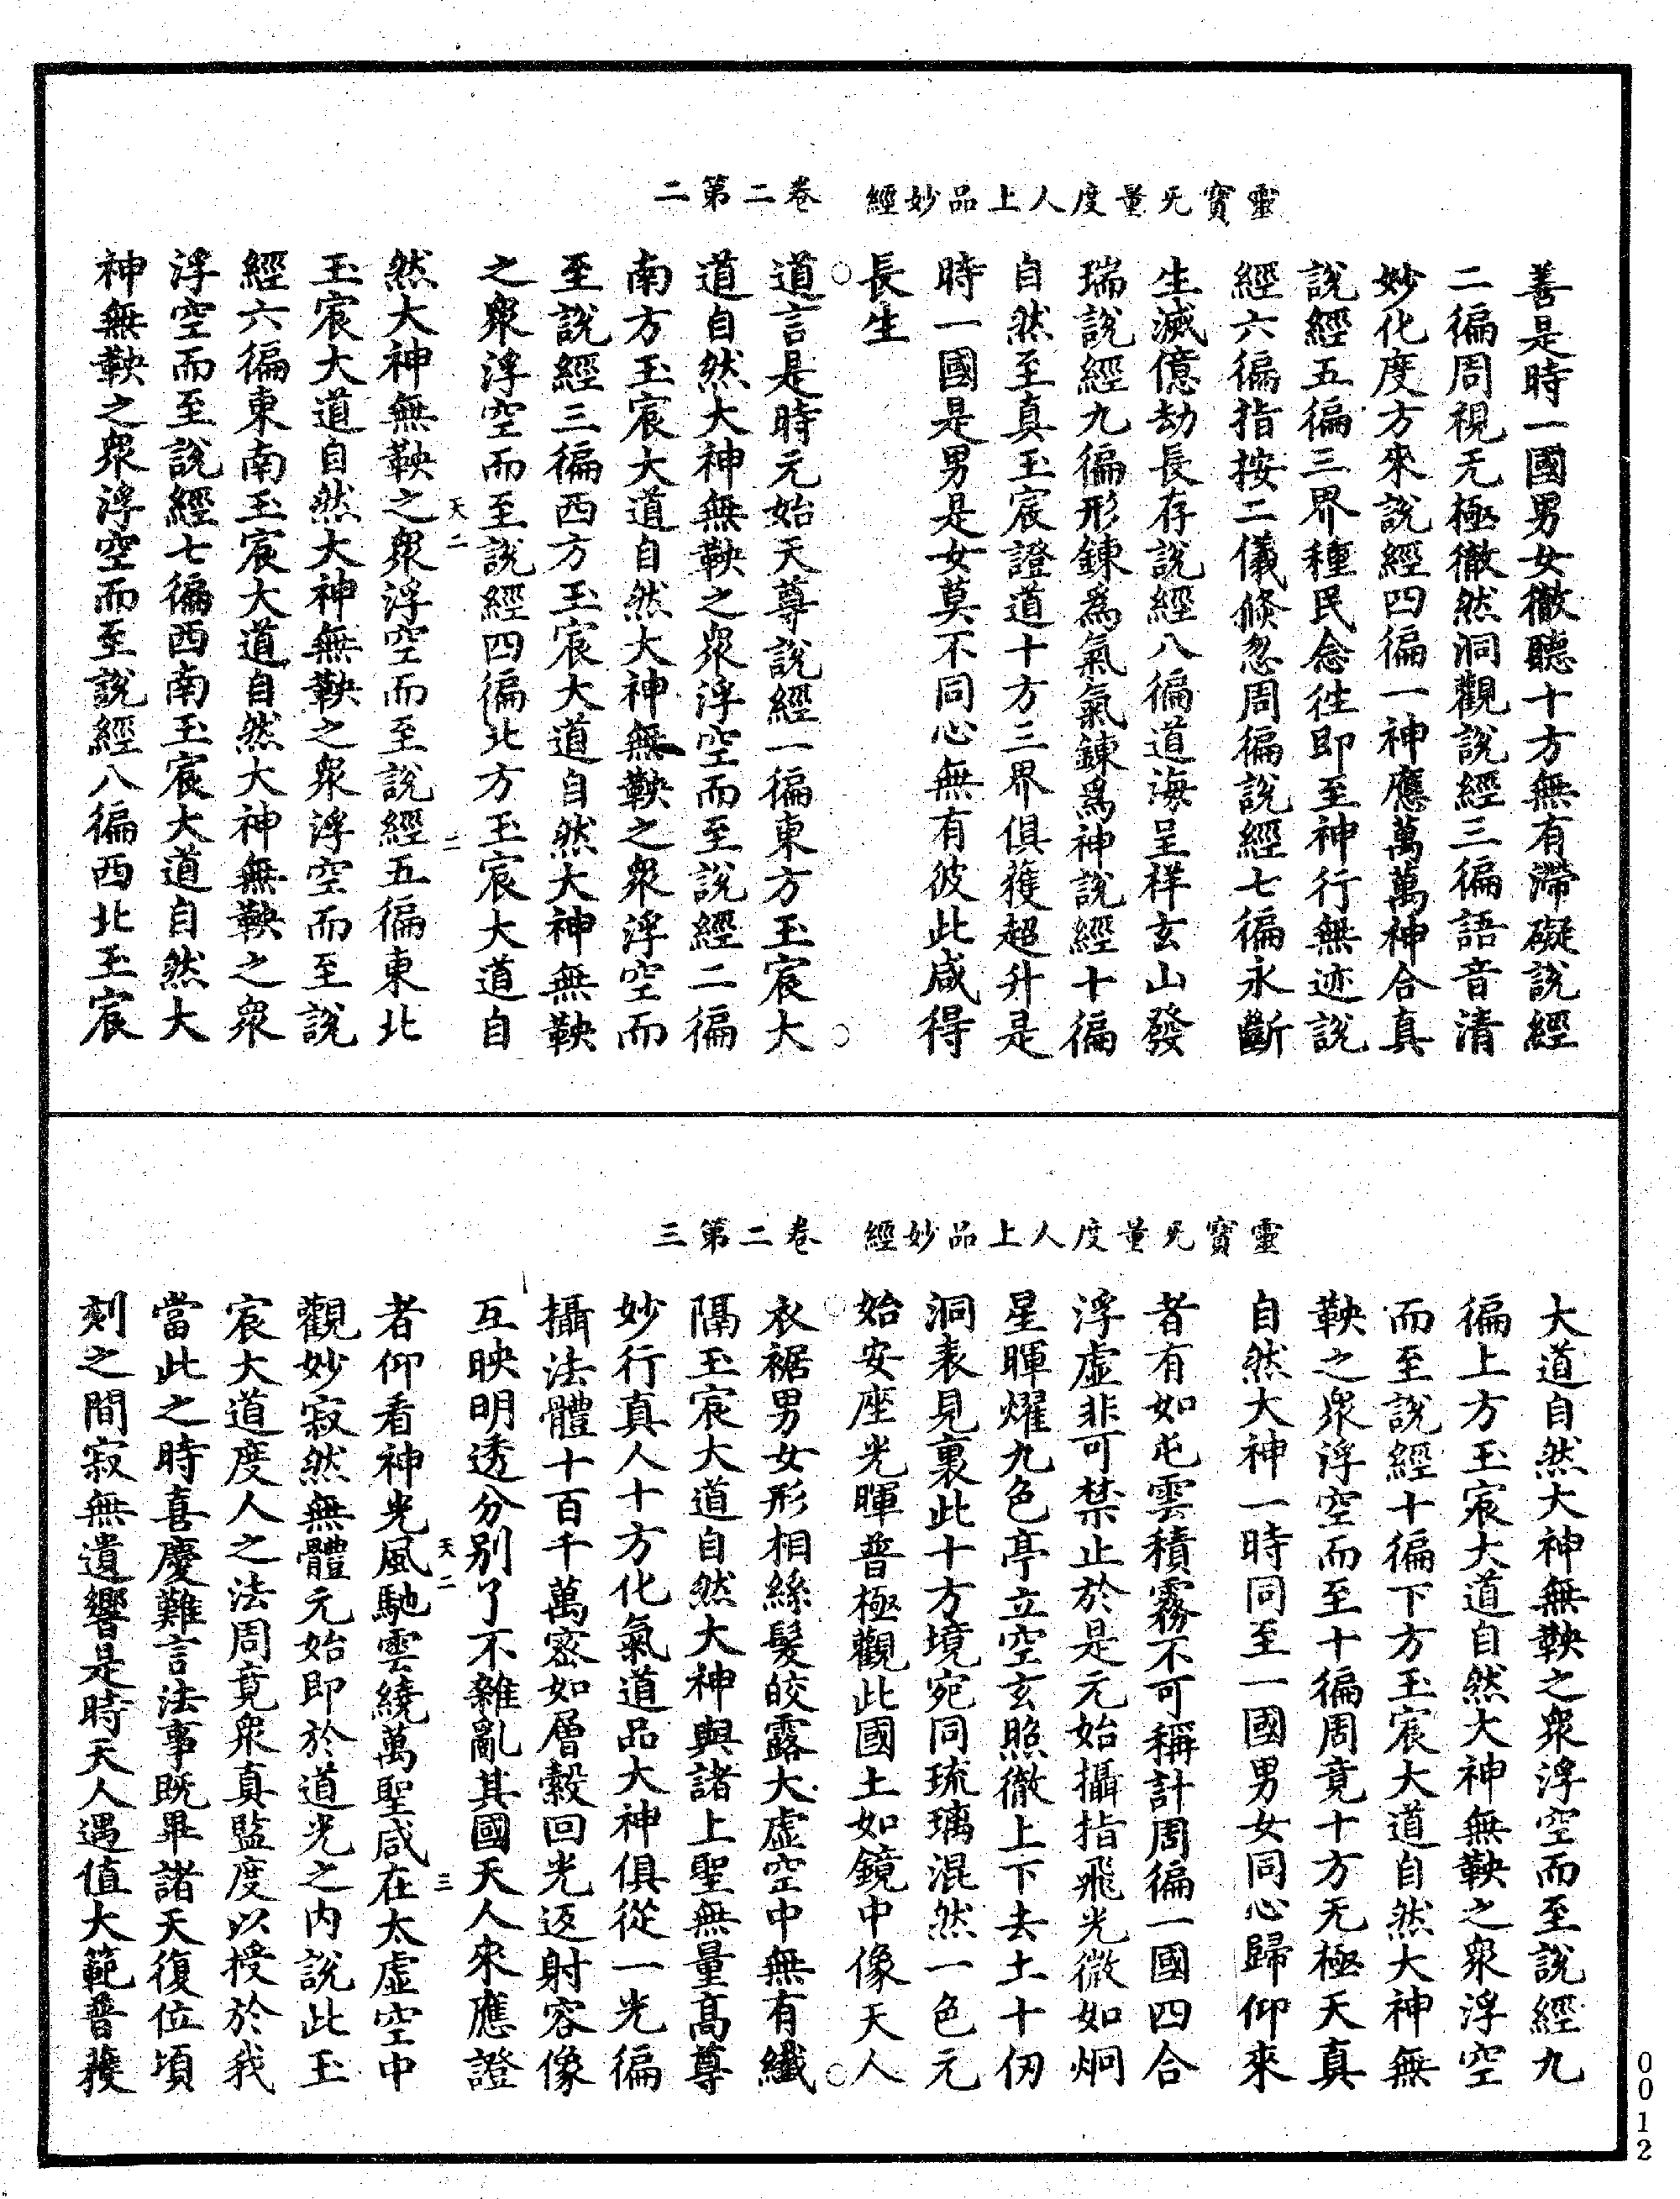 靈寶无量度人上品妙經　卷二第二
善是時一國男女徹聽十方無有滯礙說經
二徧周視无極徹然洞觀說經三徧語音清
妙化度方來說經四徧一神應萬萬神合真
說經五徧三界種民念徃即至神行無迹說
經六徧指按二儀倏忽周徧說經七徧永斷
生滅億劫長存說經八徧道海呈祥玄山發
瑞說經九徧形鍊為氣氣鍊為神說經十徧
自然至真玉宸證道十方三界俱獲超升是
時一國是男是女莫不同心無有彼此咸得
長生
道言是時元始天尊說經一徧東方玉宸大
道自然大神無鞅之衆浮空而至說經二徧
南方玉宸大道自然大神無鞅之衆浮空而
至說經三徧西方玉宸大道自然大神無鞅
之衆浮空而至說經四徧北方玉宸大道自
天二　二
然大神無鞅之衆浮空而至說經五徧東北
玉宸大道自然大神無鞅之衆浮空而至說
經六徧東南玉宸大道自然大神無鞅之衆
浮空而至說經七徧西南玉宸大道自然大
神無鞅之衆浮空而至說經八徧西北玉宸
靈寶无量度人上品妙經　卷二第三
大道自然大神無鞅之衆浮空而至說經九
徧上方玉宸大道自然大神無鞅之衆浮空
而至說經十徧下方玉宸大道自然大神無
鞅之衆浮空而至十徧周竟十方无極天真
自然大神一時同至一國男女同心歸仰來
者有如屯雲積霧不可稱計周徧一國四合
浮虛非可禁止於是元始攝指飛光微如炯
星暉燿九色亭立空玄照徹上下去土十仞
洞表見裏此十方境宛同琉璃混然一色元
始安座光暉普極觀此國土如鏡中像天人
衣裾男女形相絲髮皎露大虛空中無有纖
隔玉宸大道自然大神與諸上聖無量高尊
妙行真人十方化氣道品大神俱從一光徧
攝法體十百千萬宻如層縠回光返射容像
互映明透分别了不雜亂其國天人來應證
天二　三
者仰看神光風馳雲繞萬聖咸在太虛空中
觀妙寂然無體元始即於道光之內說此玉
宸大道度人之法周竟衆真監度以授於我
當此之時喜慶難言法事既畢諸天復位頃
刻之間寂無遺響是時天人遇值大範普獲
0012